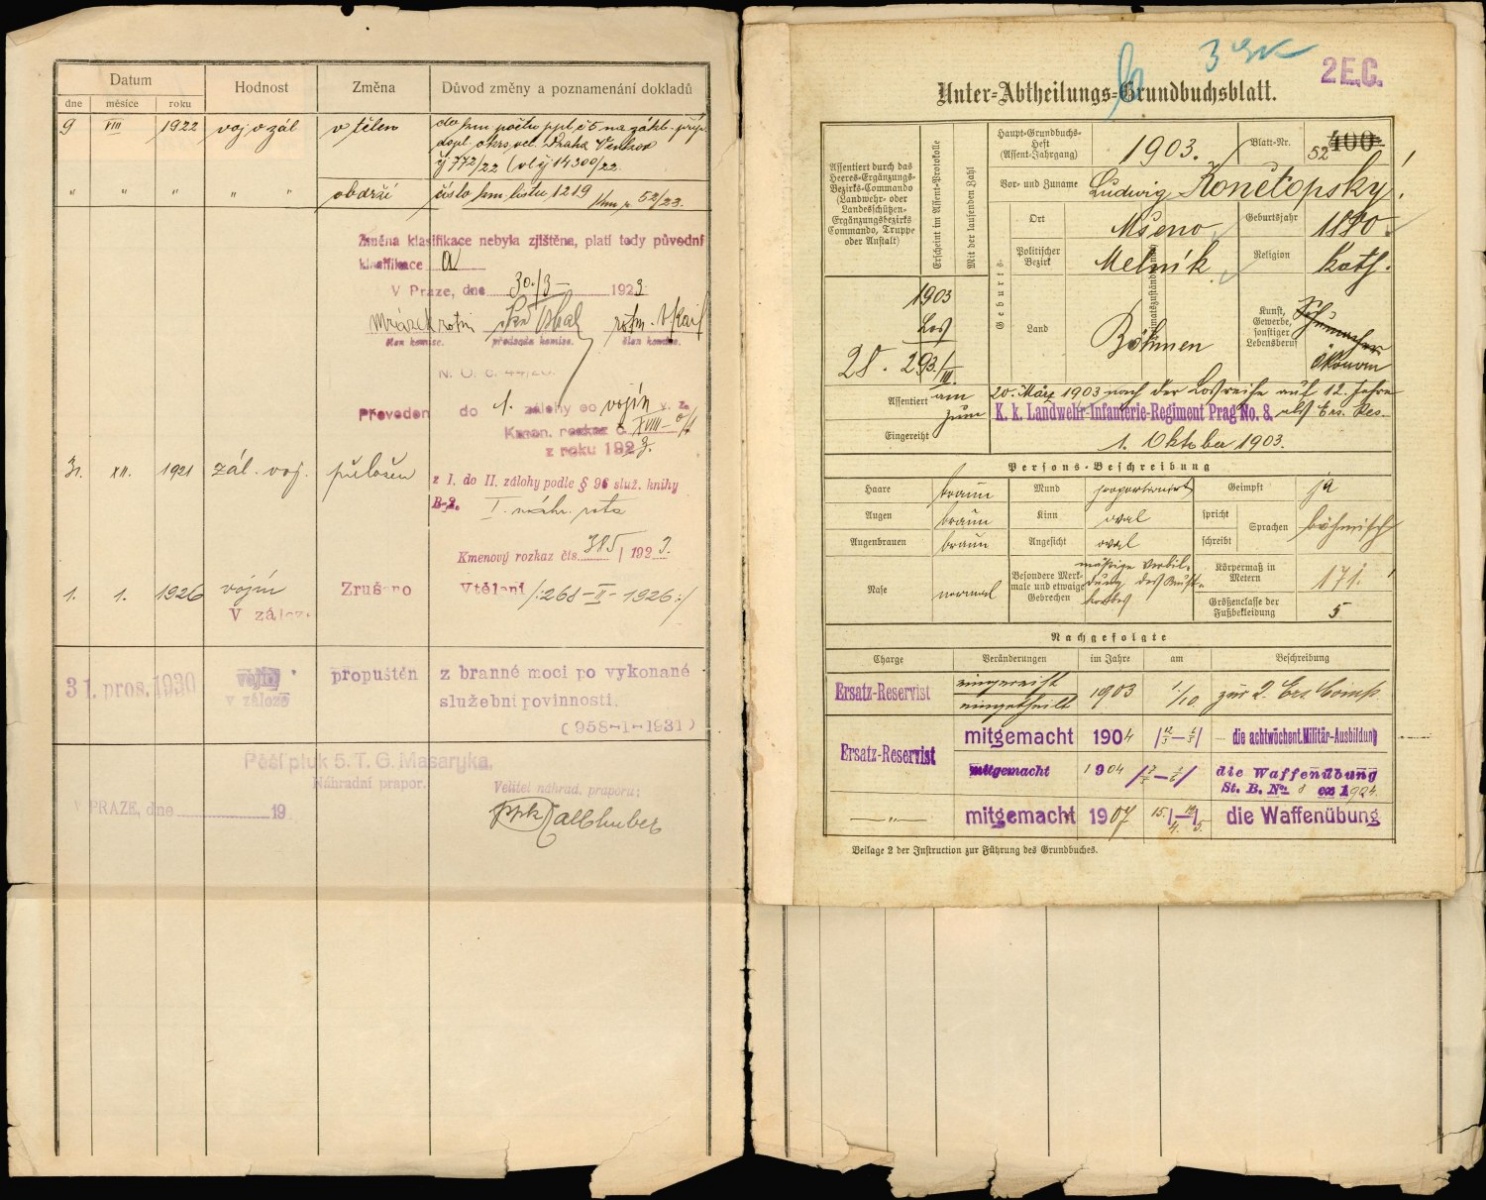 Datum
Hodnost
Změna
Důvod změny a poznamenání dokladů
dne
měsíce
roku
9 VIII 1922 voj v zál vtělen
do km počtu ppl č 5 na zákl.
dopl. okrs. vel. Praha Venkov
čj 772/22 14300/22.
" " " " " obdrží číslo km listu 1219 52/23.
Změna klasifikace nebyla zjištěna, platí tedy původní
klasifikace a
V Praze, dne 30./3 1923
člen komise. předseda komise. člen komise.
Převeden do 1. zálohy co vojín v. z.
Kmen. rozkaz č. XVIII
z roku 1923.
31. XII. 1921 zál. voj. přeložen
z I. do II. zálohy podle § 96 služ. knihy
B-2. I. náhr. rota
Kmenový rozkaz čís. 385 / 1923.
1. 1. 1926 vojín Zrušeno Vtělení /:268-II-1926:/
V záloz.
31. pros. 1930 vojín propuštěn z branné moci po vykonané
v záloze služební povinnosti.
(958-1-1931)
Pěší pluk 5. T. G. Masaryka.
Náhradní prapor.
Velitel náhrad. praporu:
V PRAZE, dne 19
2 E.C.
Unter-Abtheilungs-Grundbuchsblatt.
Assentiert durch das
Heeres-Ergänzungs-
Bezirks-Commando
(Landwehr- oder
Landesschützen-
Ergänzungsbezirks
Commando, Truppe
oder Anstalt)
Erscheint im Assent-Protokolle
Mit der laufenden Zahl
Haupt-Grundbuchs-
Heft
(Assent-Jahrgang)
1903.
Blatt-Nr.
400
52
Vor- und Zuname
Ludwig Konětopsky
Geburts-
Ort
Mšeno
Geburtsjahr
1880.
Politischer
Bezirk
Melník
Religion
Kath.
Land
Böhmen
Kunst,
Gewerbe,
sonstiger
Lebensberuf
Schumacher
Ökonom
1903
Los
28. 293/III.
Assentiert
am
20. März 1903 nach der Losreihe auf 12 Jahre
zum
K. k. Landwehr-Infanterie-Regiment Prag No. 8. als Ers. Res.
Eingereiht
1. Oktober 1903.
Persons-Beschreibung
Haare
braun
Mund
proportionirt
Geimpft
ja
Augen
braun
Kinn
oval
spricht
Sprachen
böhmisch
Augenbrauen
braun
Angesicht
oval
schreibt
Nase
normal
Besondere Merk-
male und etwaige
Gebrechen
Körpermaß in
Metern
171.
Größenclasse der
Fußbekleidung
5
Nachgefolgte
Charge
Veränderungen
im Jahre
am
Beschreibung
Ersatz-Reservist
eingereiht
eingetheilt
1903
1/10.
zur 2. Ers Comp.
Ersatz-Reservist
mitgemacht 1904 die achtwöchent. Militär-Ausbildung
mitgemacht 1904 die Waffenübung
St. B. No. 8 ex 1904.
—"— mitgemacht 1907 die Waffenübung
Beilage 2 der Instruction zur Führung des Grundbuches.